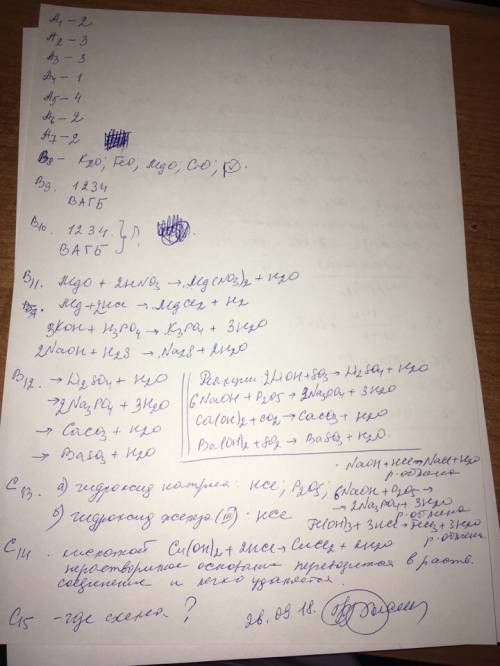 A1 – 2
A2 – 3
A3 – 3
A4 – 1
A5 – 4
A6 – 2
A7 – 2
B8 – K2O; FeO, MgO, CrO;
B9. 1234
ВАГБ
B10. 1234
ВАГБ
B11. MgO + 2HNO3 → Mg(NO3)2 + H2O
Mg + 2HCl → MgCl2 + H2
3KOH + H3PO4 → K3PO4 + 3H2O
2NaOH + H2S → Na2S + 2H2O
B12. → Li2SO4 + H2O
→ 2Na3PO4 + 3H2O
→ CaCO3 + H2O
→ BaSO3 + H2O
Реакции 2LiOH + SO3 → Li2SO4 + H2O
6NaOH + P2O5 → 2Na3PO4 + 3H2O
Ca(OH)2 + CO2 → CaCO3 + H2O
Ba(OH)2 + SO2 → BaSO3 + H2O.
C13. а) гидроксид натрия: HCl; P2O5;
NaOH + HCl → NaCl + H2O
р. обмена
6NaOH + P2O5 →
→ 2Na3PO4 + 3H2O
р. обмена
б) гидроксид железа (III): HCl
Fe(OH)3 + 3HCl → FeCl3 + 3H2O
р. обмена
C14. кислотой Cu(OH)2 + 2HCl → CuCl2 + 2H2O
нерастворимое основание переводится в раств.
соединение и легко удаляется.
C15 – где схема?
26.09.18.